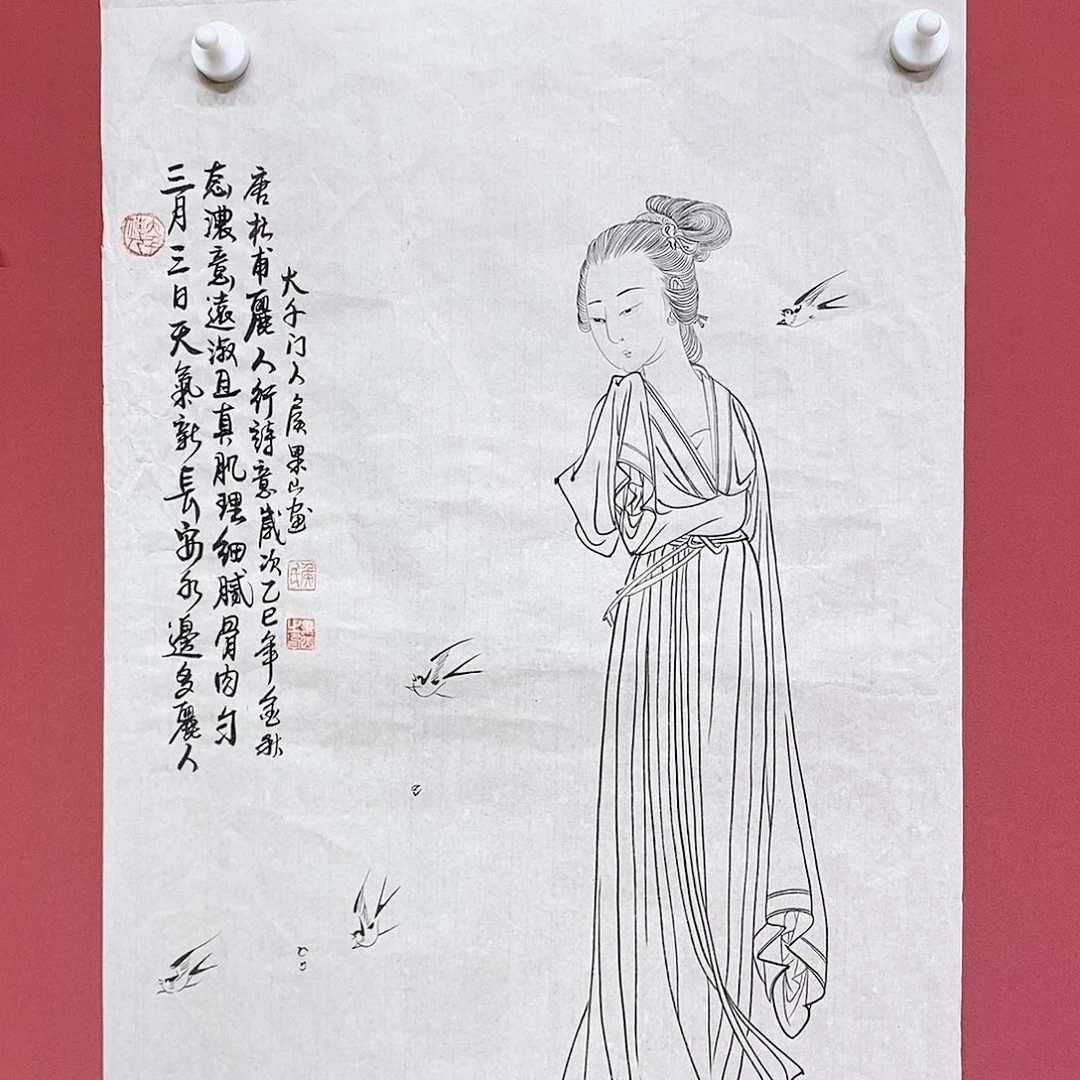 三月三日天氣新長安水邊多麗人
态濃意遠淑且真肌理細膩骨肉匀
唐杜甫麗人行詩意歲次乙巳年金秋
大千门人侯果山画
侯氏